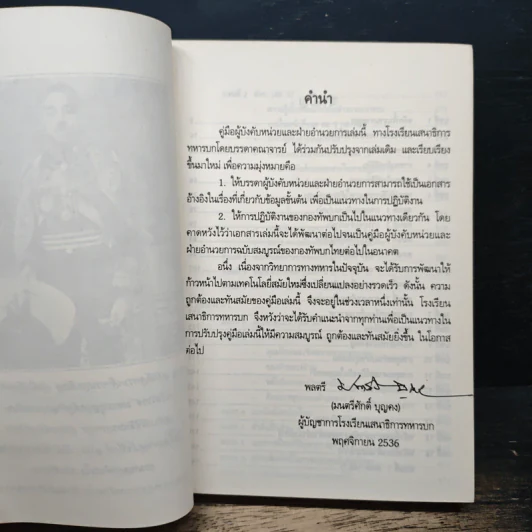 คำนำ
คู่มือผู้บังคับหน่วยและฝ่ายอำนวยการเล่มนี้ ทางโรงเรียนเสนาธิการ
ทหารบกโดยบรรดาคณาจารย์ ได้ร่วมกันปรับปรุงจากเล่มเดิม และเรียบเรียง
ขึ้นมาใหม่ เพื่อความมุ่งหมายคือ
1. ให้บรรดาผู้บังคับหน่วยและฝ่ายอำนวยการสามารถใช้เป็นเอกสาร
อ้างอิงในเรื่องที่เกี่ยวกับข้อมูลขั้นต้น เพื่อเป็นแนวทางในการปฏิบัติงาน
2. ให้การปฏิบัติงานของกองทัพบกเป็นไปในแนวทางเดียวกัน โดย
คาดหวังไว้ว่าเอกสารเล่มนี้จะได้พัฒนาต่อไปจนเป็นคู่มือผู้บังคับหน่วยและ
ฝ่ายอำนวยการฉบับสมบูรณ์ของกองทัพบกไทยต่อไปในอนาคต
อนึ่ง เนื่องจากวิทยาการทางทหารในปัจจุบัน จะได้รับการพัฒนาให้
ก้าวหน้าไปตามเทคโนโลยีสมัยใหม่ซึ่งเปลี่ยนแปลงอย่างรวดเร็ว ดังนั้น ความ
ถูกต้องและทันสมัยของคู่มือเล่มนี้ จึงจะอยู่ในช่วงเวลาหนึ่งเท่านั้น โรงเรียน
เสนาธิการทหารบก จึงหวังว่าจะได้รับคำแนะนำจากทุกท่านเพื่อเป็นแนวทางใน
การปรับปรุงคู่มือเล่มนี้ให้มีความสมบูรณ์ ถูกต้องและทันสมัยยิ่งขึ้น ในโอกาส
ต่อไป
พลตรี
(มนตรีศักดิ์ บุญคง)
ผู้บัญชาการโรงเรียนเสนาธิการทหารบก
พฤศจิกายน 2536